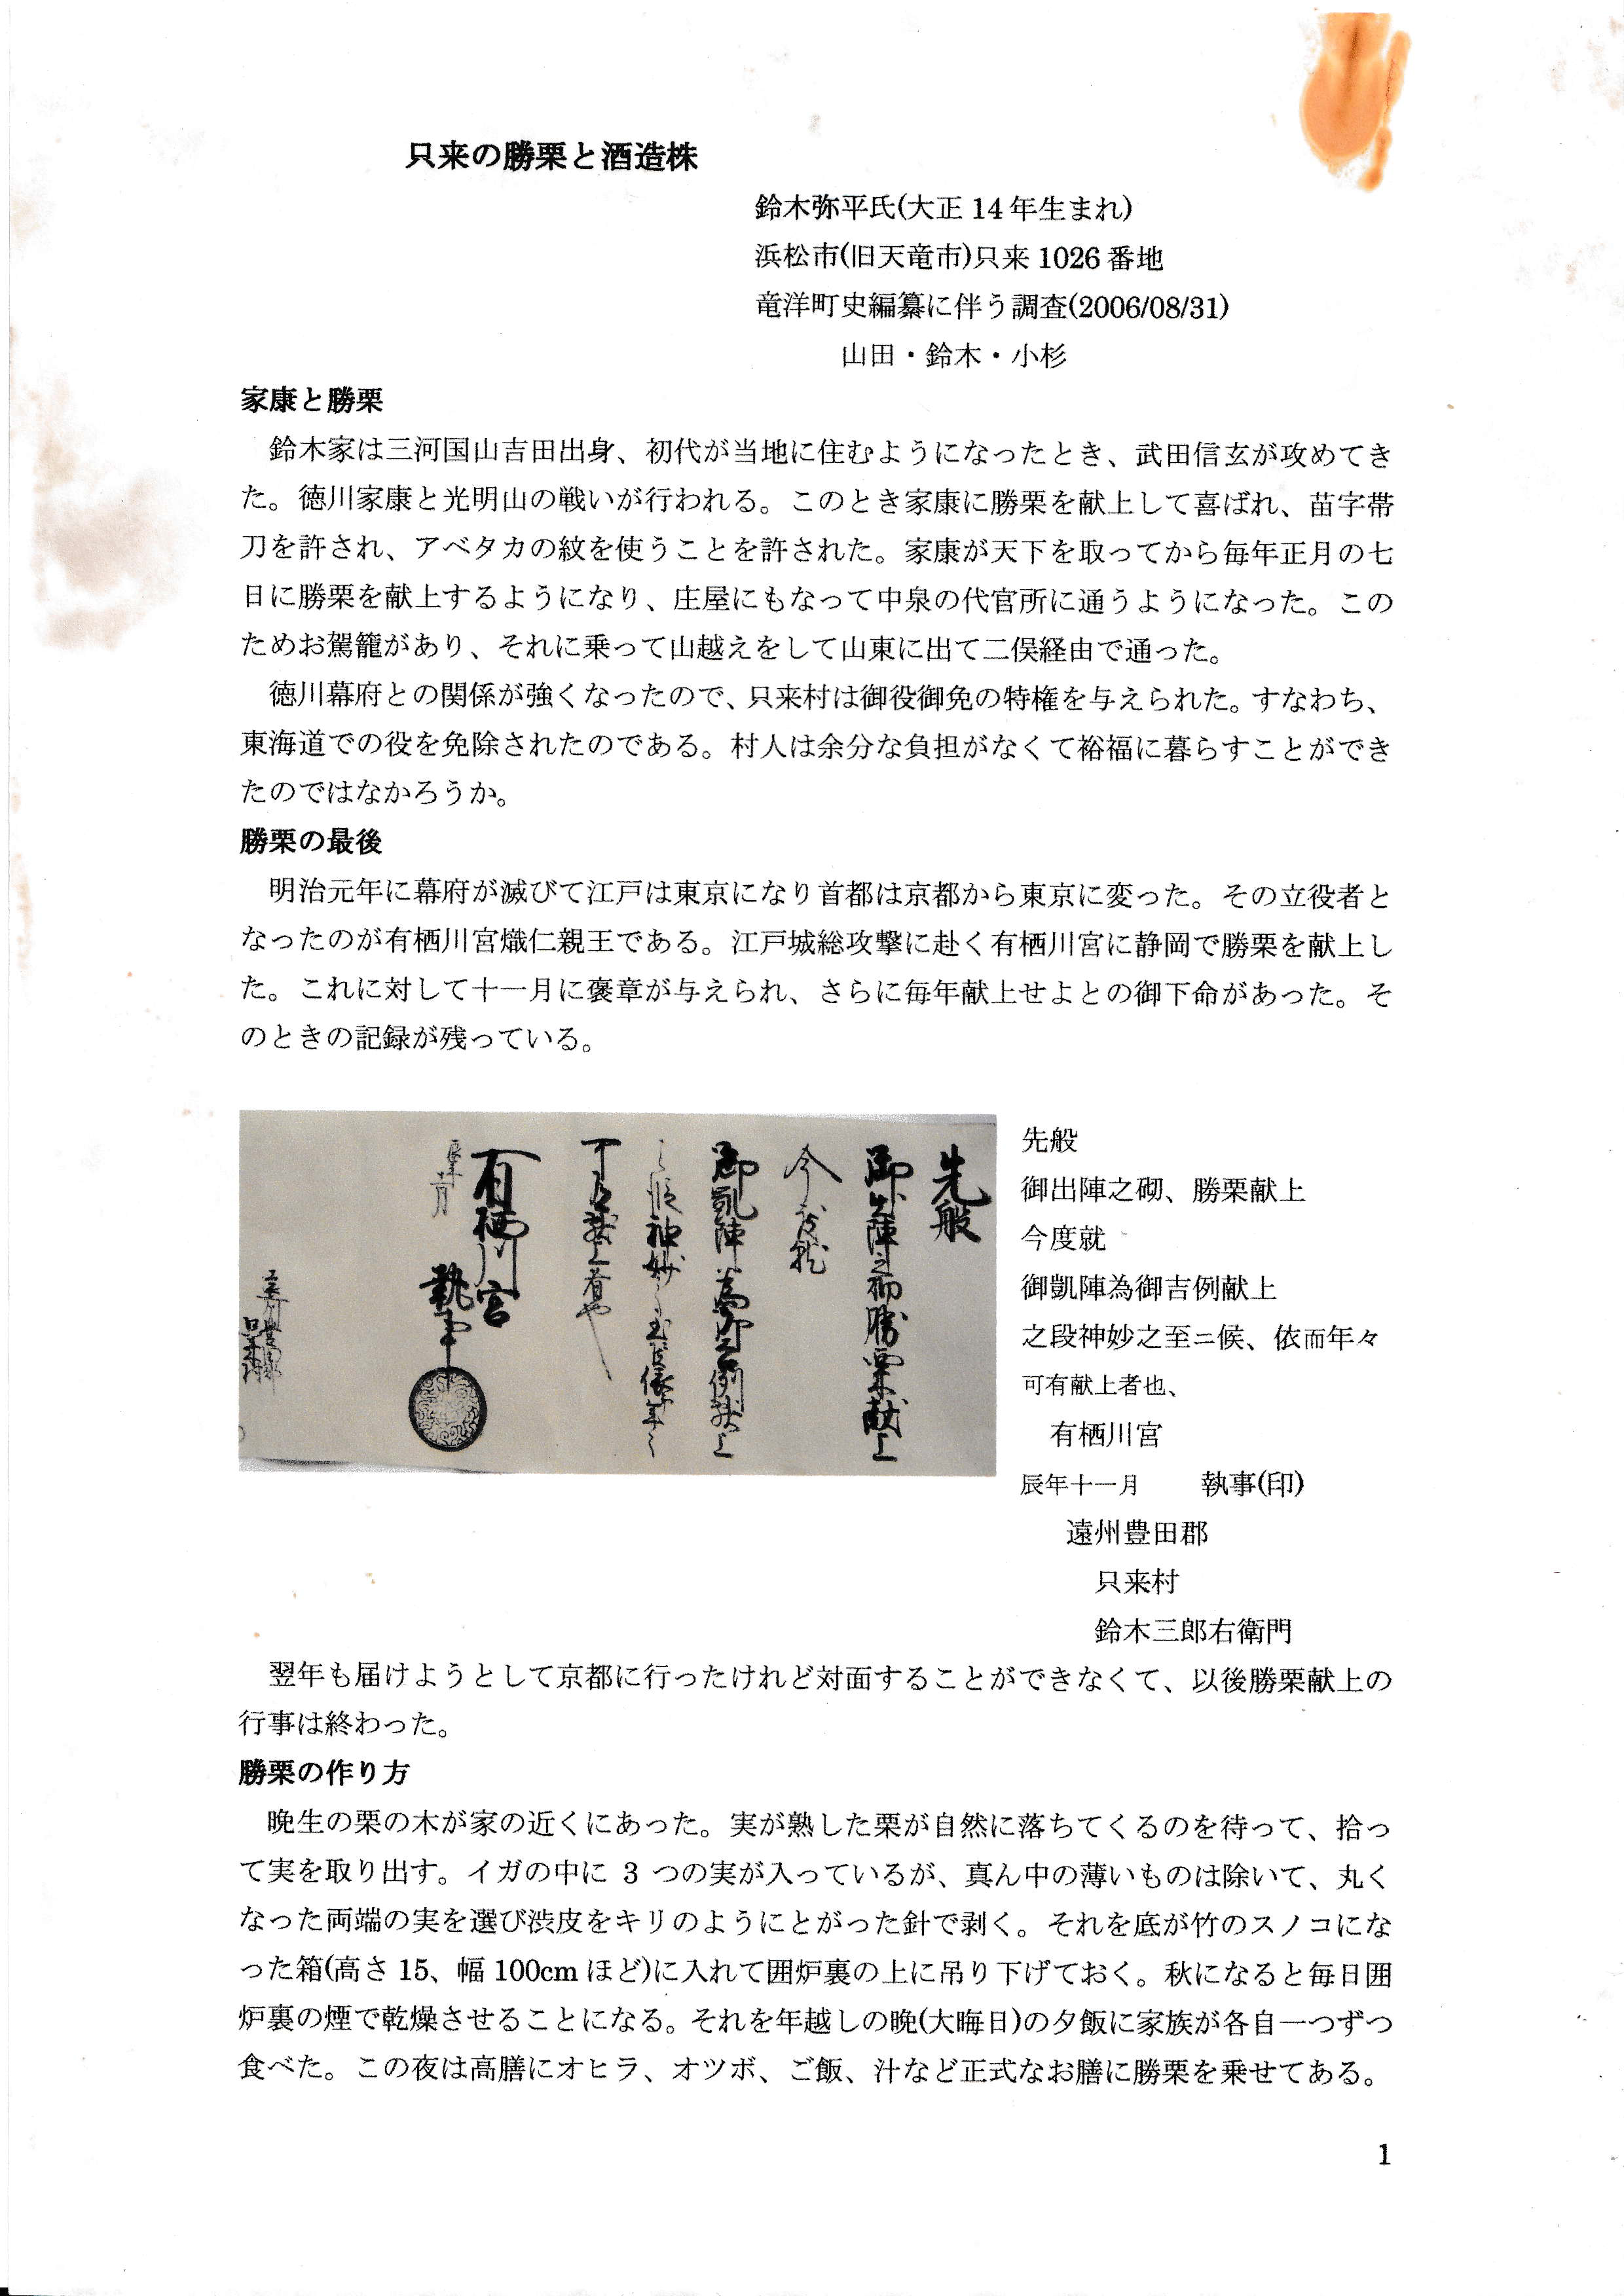 只来の勝栗と酒造株
鈴木弥平氏(大正 14 年生まれ)
浜松市(旧天竜市)只来 1026 番地
竜洋町史編纂に伴う調査(2006/08/31)
山田・鈴木・小杉
家康と勝栗
鈴木家は三河国山吉田出身、初代が当地に住むようになったとき、武田信玄が攻めてき
た。徳川家康と光明山の戦いが行われる。このとき家康に勝栗を献上して喜ばれ、苗字帯
刀を許され、アベタカの紋を使うことを許された。家康が天下を取ってから毎年正月の七
日に勝栗を献上するようになり、庄屋にもなって中泉の代官所に通うようになった。この
ためお駕籠があり、それに乗って山越えをして山東に出て二俣経由で通った。
徳川幕府との関係が強くなったので、只来村は御役御免の特権を与えられた。すなわち、
東海道での役を免除されたのである。村人は余分な負担がなくて裕福に暮らすことができ
たのではなかろうか。
勝栗の最後
明治元年に幕府が滅びて江戸は東京になり首都は京都から東京に変った。その立役者と
なったのが有栖川宮熾仁親王である。江戸城総攻撃に赴く有栖川宮に静岡で勝栗を献上し
た。これに対して十一月に褒章が与えられ、さらに毎年献上せよとの御下命があった。そ
のときの記録が残っている。
先般
御出陣之砌勝栗献上
今度就
御凱陣為御吉例献上
之段神妙之至候依而年々
可有献上者也
有栖川宮
執事
辰年十一月
先般
御出陣之砌、勝栗献上
今度就
御凱陣為御吉例献上
之段神妙之至ニ候、依而年々
可有献上者也、
有栖川宮
辰年十一月　　執事(印)
遠州豊田郡
只来村
鈴木三郎右衛門
翌年も届けようとして京都に行ったけれど対面することができなくて、以後勝栗献上の
行事は終わった。
勝栗の作り方
晩生の栗の木が家の近くにあった。実が熟した栗が自然に落ちてくるのを待って、拾っ
て実を取り出す。イガの中に 3 つの実が入っているが、真ん中の薄いものは除いて、丸く
なった両端の実を選び渋皮をキリのようにとがった針で剥く。それを底が竹のスノコにな
った箱(高さ 15、幅 100cm ほど)に入れて囲炉裏の上に吊り下げておく。秋になると毎日囲
炉裏の煙で乾燥させることになる。それを年越しの晩(大晦日)の夕飯に家族が各自一つずつ
食べた。この夜は高膳にオヒラ、オツボ、ご飯、汁など正式なお膳に勝栗を乗せてある。
1